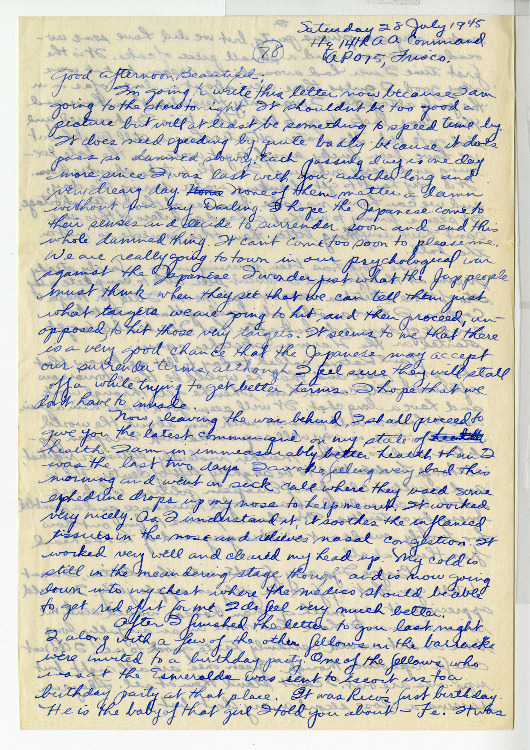 Saturday 28 July 1945
(78) Hq 14th AA Command
APO 75, Frisco.
Good afternoon, Beautiful;
I'm going to write this letter now because I am
going to the show tonight. It shouldn't be too good a
picture but will at least be something to speed time by.
It does need speeding by quite badly because it does
pass so damned slowly. Each passing day is one day
more since I was last with you, another long and
very dreary day none of them matter a damn
without you my Darling. I hope the Japanese come to
their senses and decide to surrender soon and end this
whole damned thing. It can't come too soon to please me.
We are really going to town in our psychological war
against the Japanese. I wonder just what the Jap people
must think when they see that we can tell them just
what targets we are going to hit and then proceed, un-
opposed, to hit those very targets. It seems to me that there
is a very good chance that the Japanese may accept
our surrender terms, although I feel sure they will stall
off a while trying to get better terms. I hope that we
don't have to invade.
Now, leaving the war behind I shall proceed to
give you the latest communique on my state of
health. I am in immeasurably better health than I
was the last two days. I awoke feeling very bad this
morning and went on sick call where they used some
ephedrine drops up my nose to help me out. It worked
very nicely. As I understand it it soothes the inflamed
tissues in the nose and relieves nasal congestion. It
worked very well and cleared my head up. My cold is
still in the meandering stage though and is now going
down into my chest where the medics should be able
to get rid of it for me. I do feel very much better.
After I finished the letter to you last night
I along with a few of the other fellows in the barracks
were invited to a birthday party. One of the fellows who
was at the Esmeralda was sent to escort us to a
birthday party at that place. It was Rico's first birthday.
He is the baby of that girl I told you about - Fe. It was